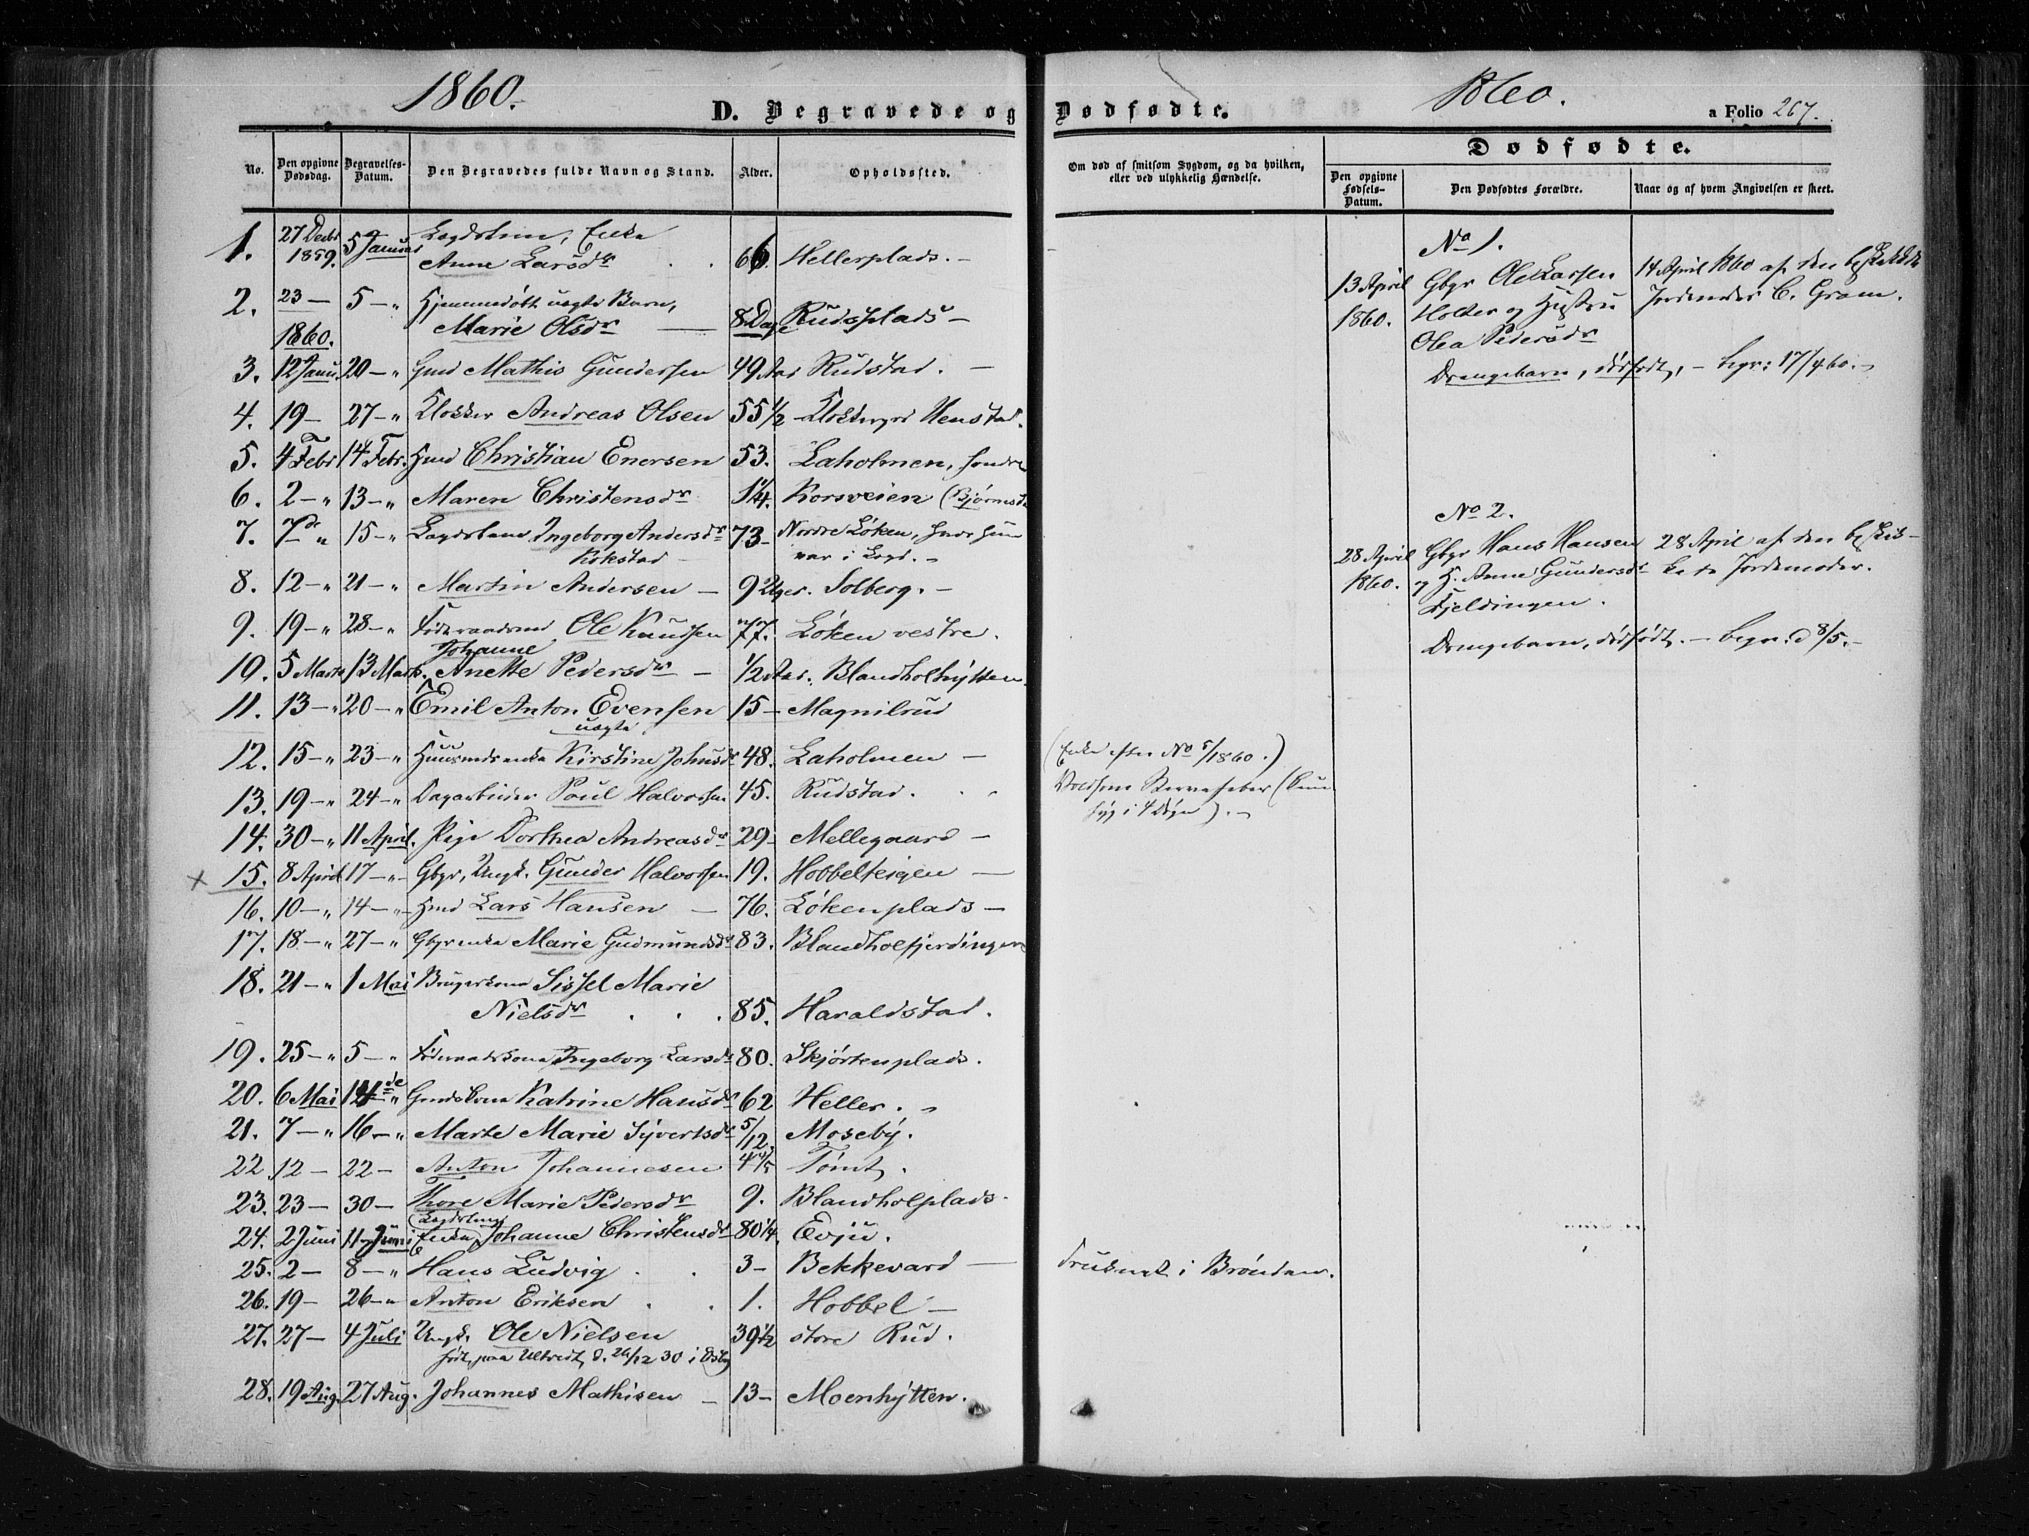 1860.
D. Begravede og
No.
Den opgivne Dødsdag.
Begravelses-Datum.
Den Begravedes fulde Navn og Stand.
Alder.
Opholdssted.
1. 27 Decbr 1859. 5 Januar Lægdslem, Enke
Anne Larsdr 66. Hellerplads. –
2. 23 – 5 – " Hjemmedøbt uægte Barn,
Marie Olsdr – 8 Dage Rudsplads –
1860.
3. 12 Janu. 20 – " Gmd Mathis Gundersen 49 Aar Rudstad. –
4. 19 – 27 – " Klokker Andreas Olsen 55 1/2 Klokkergrd Henstad.
5. 4 Febr 14 Febr. Hmd Christian Enersen 53. Laholmen, søndre
6. 2 – " 13 – " Maren Christensdr 1/4. Korsveien (Bjørnst
7. 7de " 15 – " Lægdslem Ingeborg Andersdr 73 – Nordre Løken, hvor hun
Kokstad – var i Lægd. –
8. 12 – " 21 – " Martin Andersen – 9 Uger. Solberg. –
9. 19 – " 28 – " Føderaadsmd Ole Knudsen 77. Løken vestre.
Johanne
10. 5 Marts 13 Marts. Anette Pedersdr – 1/2 Aar. Blandholhytten.
11. 13 – " 20 – " Emil Anton Evensen 15 – Magnilrud
uægte
12. 15 – " 23 – " Huusmdsenke Kirstine Johnsdr 48. Laholmen –
13. 19 – " 24 – " Dagarbeider Poul Halvorsen 45. Rudstad.
14. 30 – " 11 April. Pige Dorthea Andreasdr 29 – Mellegaard –
x 15. 8 April 17 – " Gbgr, Ungk. Gunder Halvorsen 19. Hobbelteigen –
16. 10 – " 14 – " Hmd Lars Hansen – 76. Løkenplads –
17. 18 – " 27 – " Gbgrenke Marie Gudmundsdr 83. Blandholfjerdingen
18. 21 – " 1 Mai Brugerkone Sissel Marie
Nielsdr . . . 85. Haraldstad.
19. 25 – " 5 – " Føderaadskone Ingeborg Larsdr 80. Skjørtenplads.
20. 6 Mai 14de " Gmdskone Katrine Hansdr 62 Heller. "
21. 7 – " 16 – " Marte Marie Syvertsdr 5/12. Moseby.
22. 12 – 22 – Anton Johannesen 4 4/5 Tomt.
23. 23 – 30 – Thore Marie Pedersdr 9. Blandholplads.
Lægdslem
24. 2 Juni 11 Juni Enke Johanne Christensdr 80 1/4. Evju.
25. 2 – 8 – " Hans Ludvig . . 3 – Bekkevard –
26. 19 – 26 – " Anton Eriksen . . 1. Hobbel –
27. 27 – 4 Juli Ungk. Ole Nielsen 39 1/2 store Rud.
født paa Ultvedt, d. 26/12 30 i
28. 19 Aug. 27 Aug. Johannes Mathisen – 13 – Moenhytten.
Dødfødte.
1860.
a Folio 267.
Om død af smitsom Sygdom, og da hvilken, eller ved ulykkelig Hændelse.
Dødfødte.
Den opgivne Fødsels-Datum.
Den Dødfødtes Forældre.
Naar og af hvem Angivelsen er skeet.
No 1.
13 April Gbgr Ole Larsen 14 April 1860 af den beskikkede
1860. Holter og Hustru Jordemoder C. Gram.
Olea Pedersdr
Drengebarn, dødfødt, – begr: 17/4 60. –
No 2.
28 April Gbgr Hans Hansen 28 April af den beskik-
1860. og H. Anne Gundersdr kede Jordemoder.
Fjeldingen.
Drengebarn, dødfødt. – begr. d 8/5. –
(Enke efter No 5/1860.)
Voldsom Nervefeber (kun
syg i 4 Døgn). –
Druknet i Brønden.